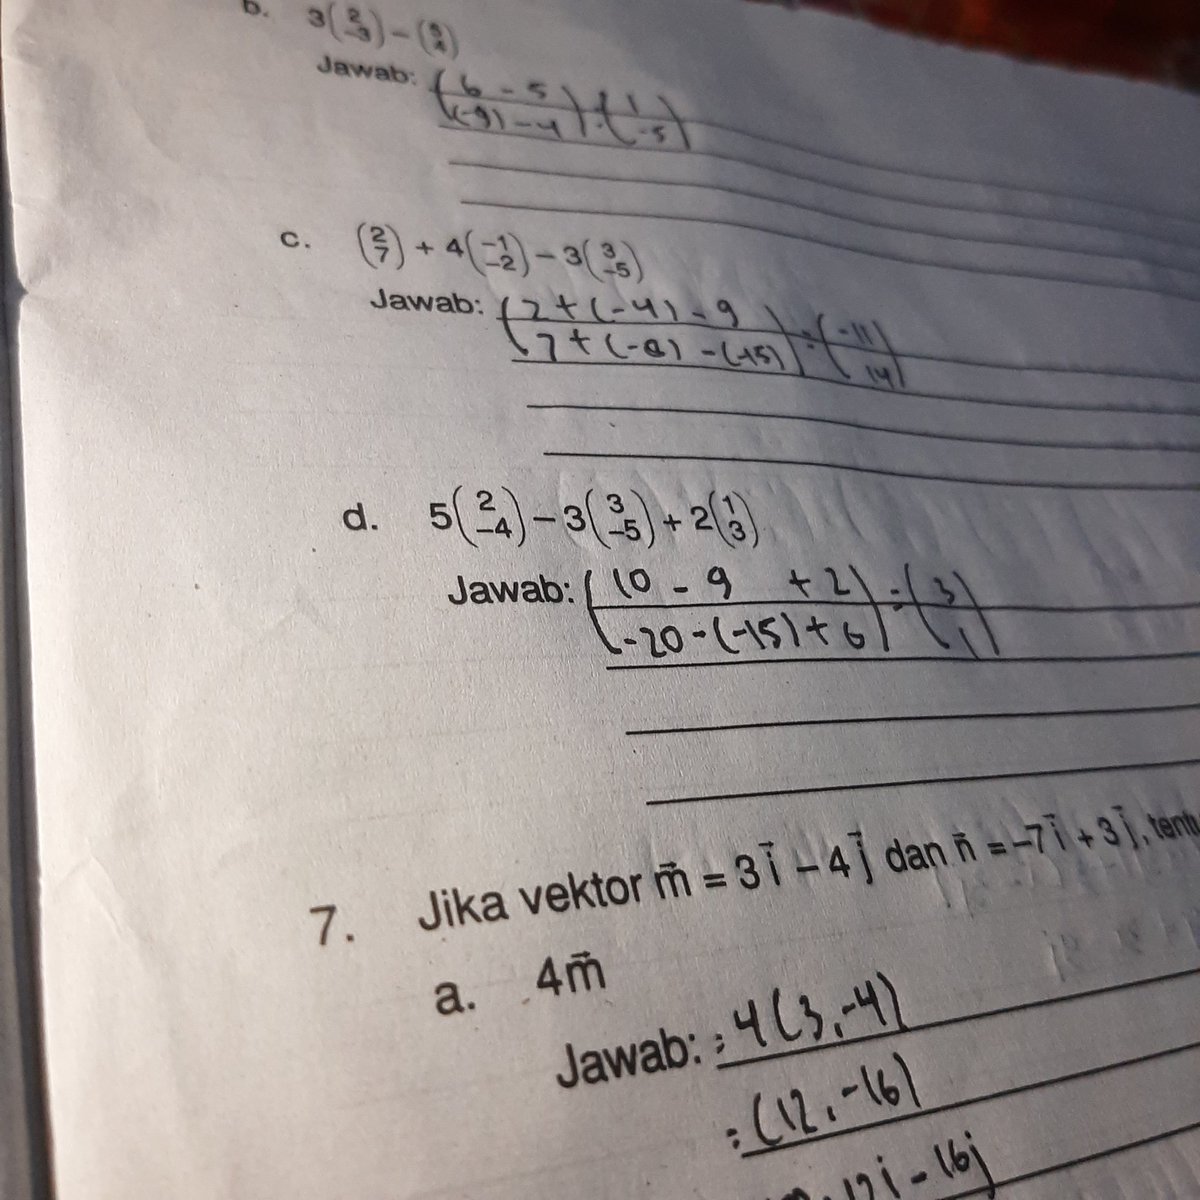 b. 3(2 -3) - (5 4)
Jawab: (6 - 5 (-9) - 4) = (1 -5)
c. (2 7) + 4(-1 -2) - 3(3 -5)
Jawab: (2 + (-4) - 9 7 + (-8) - (-15)) = (-11 14)
d. 5(2 -4) - 3(3 -5) + 2(1 3)
Jawab: (10 - 9 + 2 -20 - (-15) + 6) = (3 1)
7. Jika vektor m⃗ = 3i⃗ - 4j⃗ dan n⃗ = -7i⃗ + 3j⃗,
a. 4m⃗
Jawab: = 4(3, -4)
= (12, -16)
12i - 16j